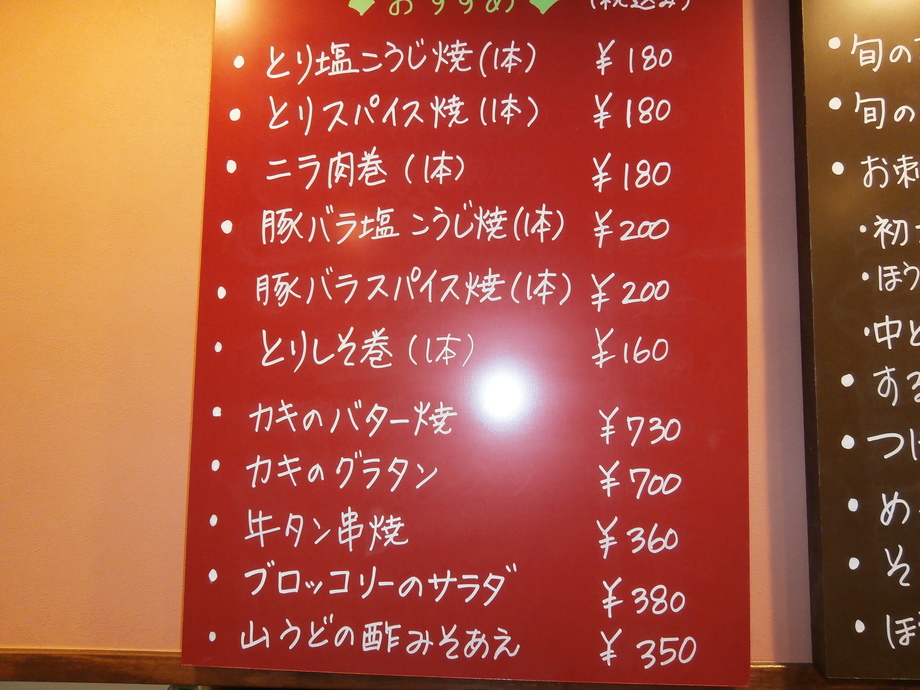 おすすめ (税込み)
・とり塩こうじ焼(1本) ¥180
・とりスパイス焼(1本) ¥180
・ニラ肉巻(1本) ¥180
・豚バラ塩こうじ焼(1本) ¥200
・豚バラスパイス焼(1本) ¥200
・とりしそ巻(1本) ¥160
・カキのバター焼 ¥730
・カキのグラタン ¥700
・牛タン串焼 ¥360
・ブロッコリーのサラダ ¥380
・山うどの酢みそあえ ¥350
・旬の
・旬の
・お刺
・初
・ほう
・中と
・する
・つ
・め
・そ
・ほ